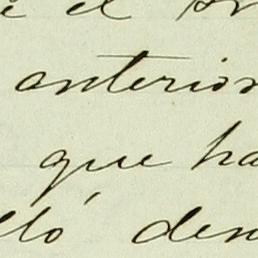 e el
anterior
que ha
lló den